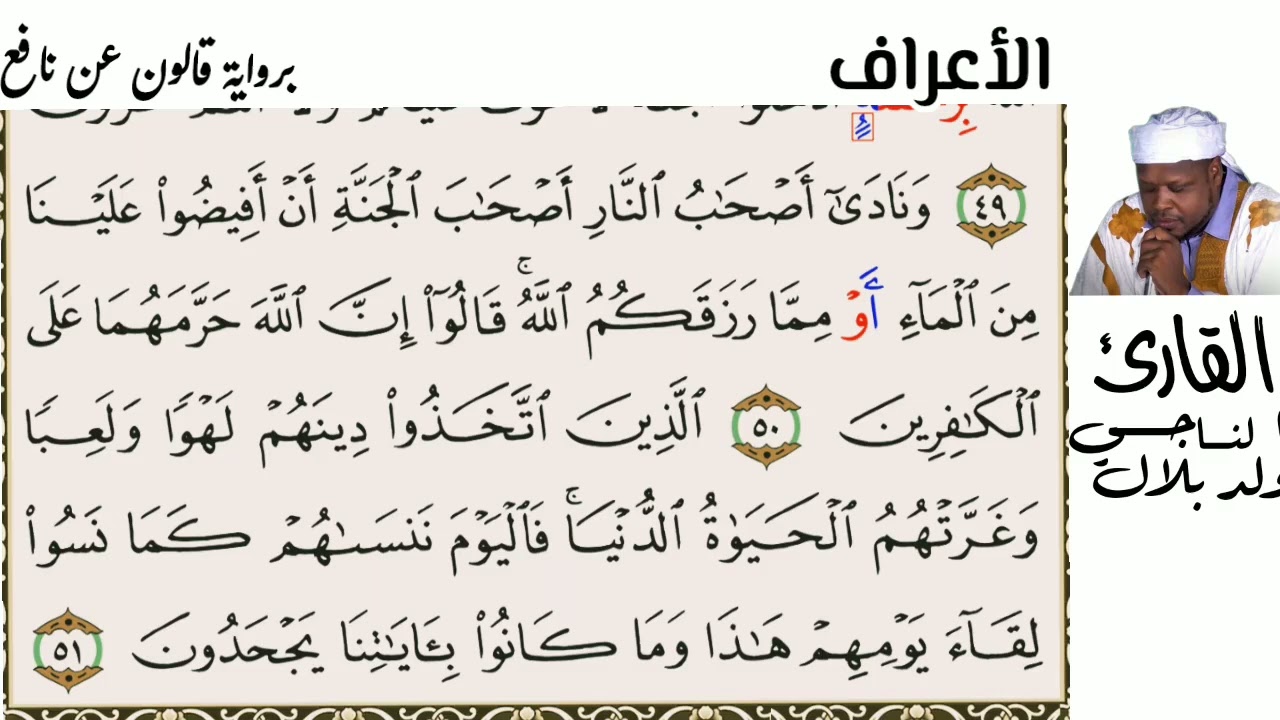 الأعراف
برواية قالون عن نافع
٤٩ وَنَادَىٰٓ أَصْحَٰبُ اُ۬لنَّارِ أَصْحَٰبَ اَ۬لْجَنَّةِ أَنْ أَفِيضُواْ عَلَيْنَا
مِنَ اَ۬لْمَآءِ أَوْ مِمَّا رَزَقَكُمُ اُ۬للَّهُۚ قَالُوٓاْ إِنَّ اَ۬للَّهَ حَرَّمَهُمَا عَلَى
اَ۬لْكَٰفِرِينَ ٥٠ اَ۬لَّذِينَ اَ۪تَّخَذُواْ دِينَهُمْ لَهْوٗا وَلَعِبٗا
وَغَرَّتْهُمُ اُ۬لْحَيَوٰةُ اُ۬لدُّنْيَاۚ فَالْيَوْمَ نَنسَىٰهُمْ كَمَا نَسُواْ
لِقَآءَ يَوْمِهِمْ هَٰذَا وَمَا كَانُواْ بِـَٔايَٰتِنَا يَجْحَدُونَ ٥١
القارئ
الناجي
ولد بلال